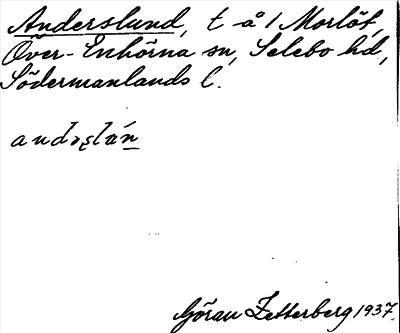 Anderslund, t å 1 Morlöt,
Över-Enhörna sn, Selebo hd,
Södermanlands l.
andəşlán
Göran Zetterberg 1937.